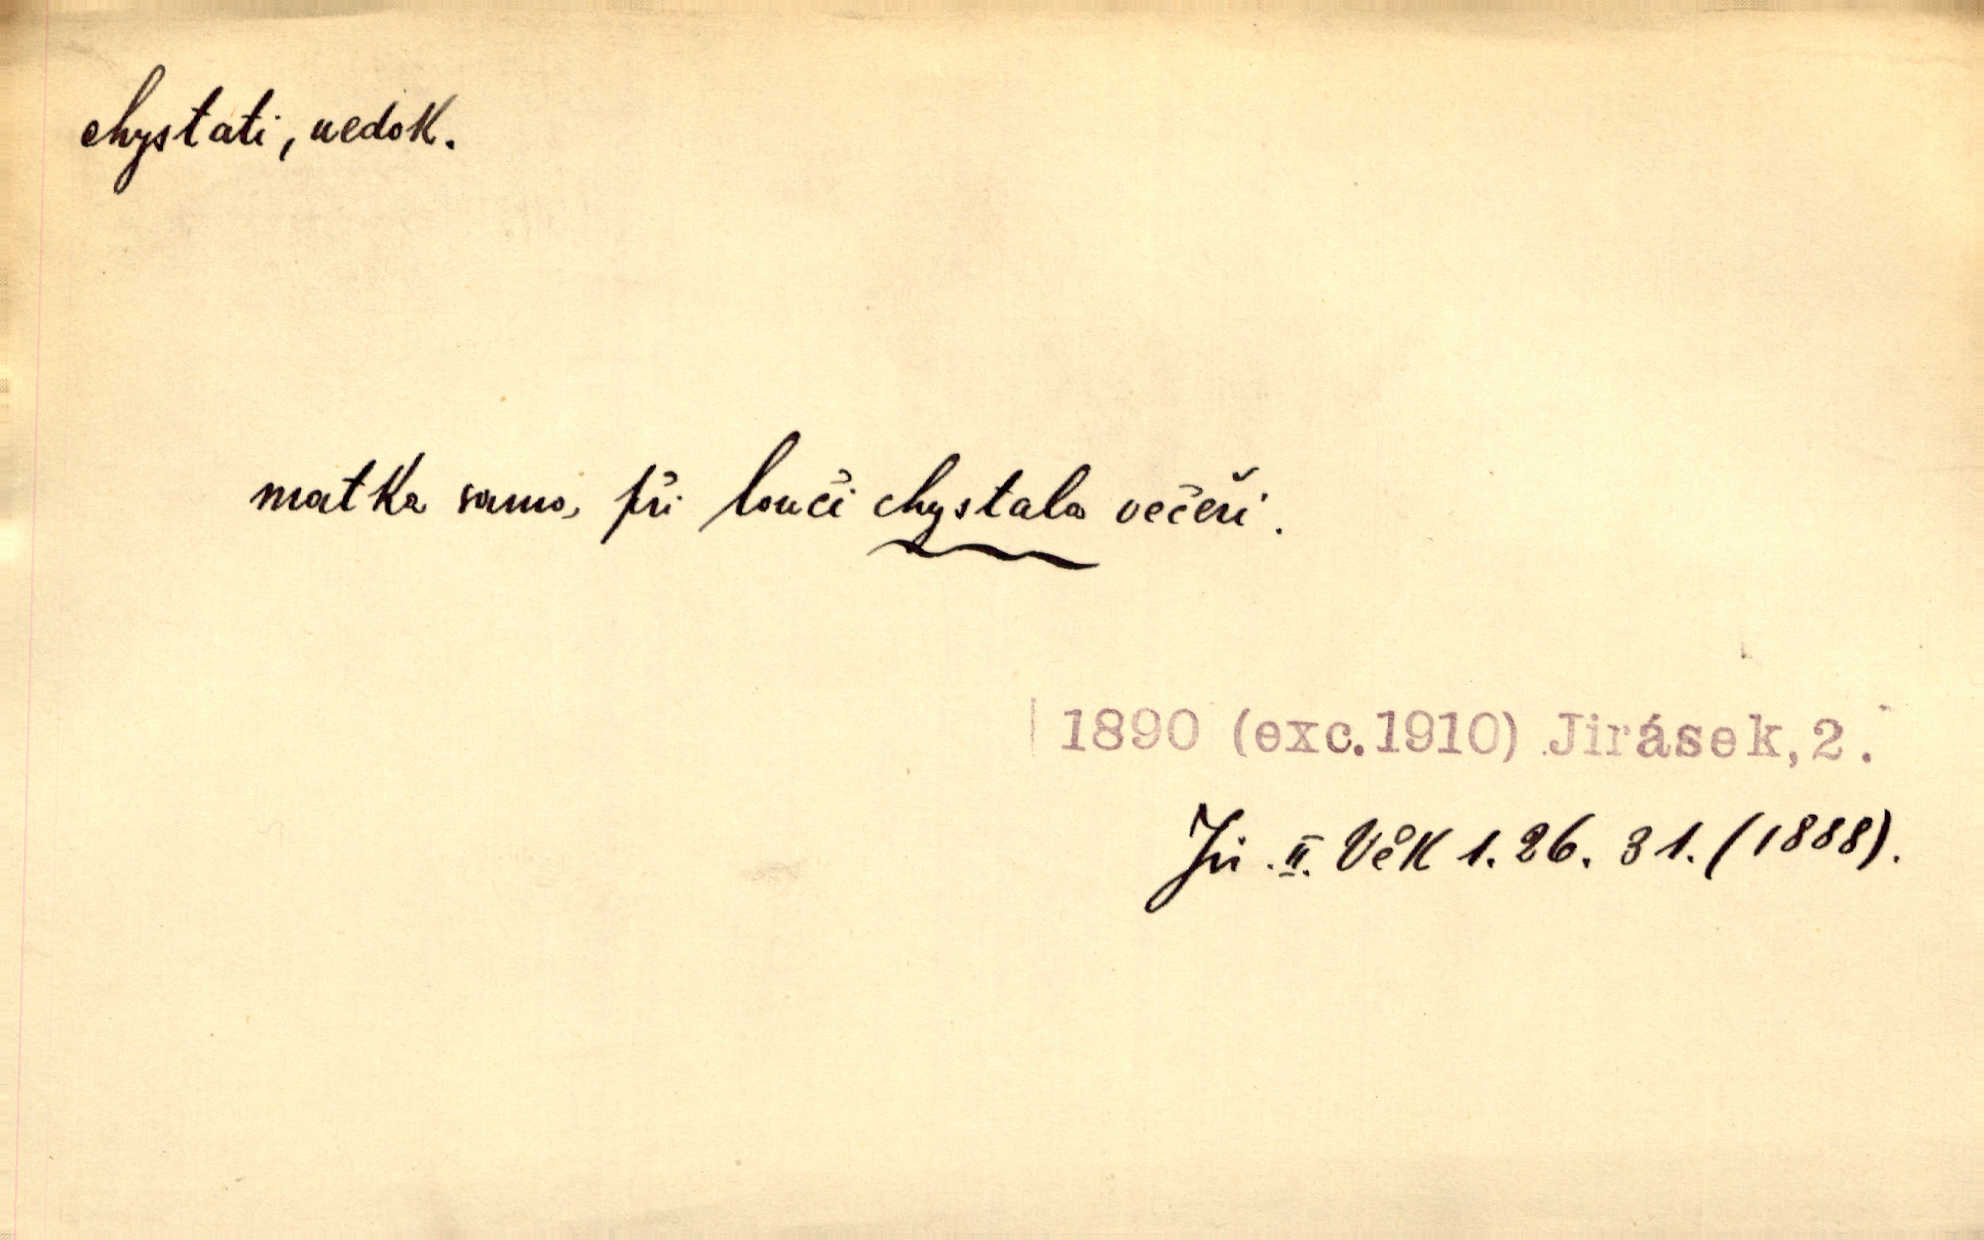 chystati, nedok.
matka sama, při louči chystala večeři.
1890 (exc.1910) Jirásek, 2.
Jir. II. Věk 1. 26. 31. (1888).